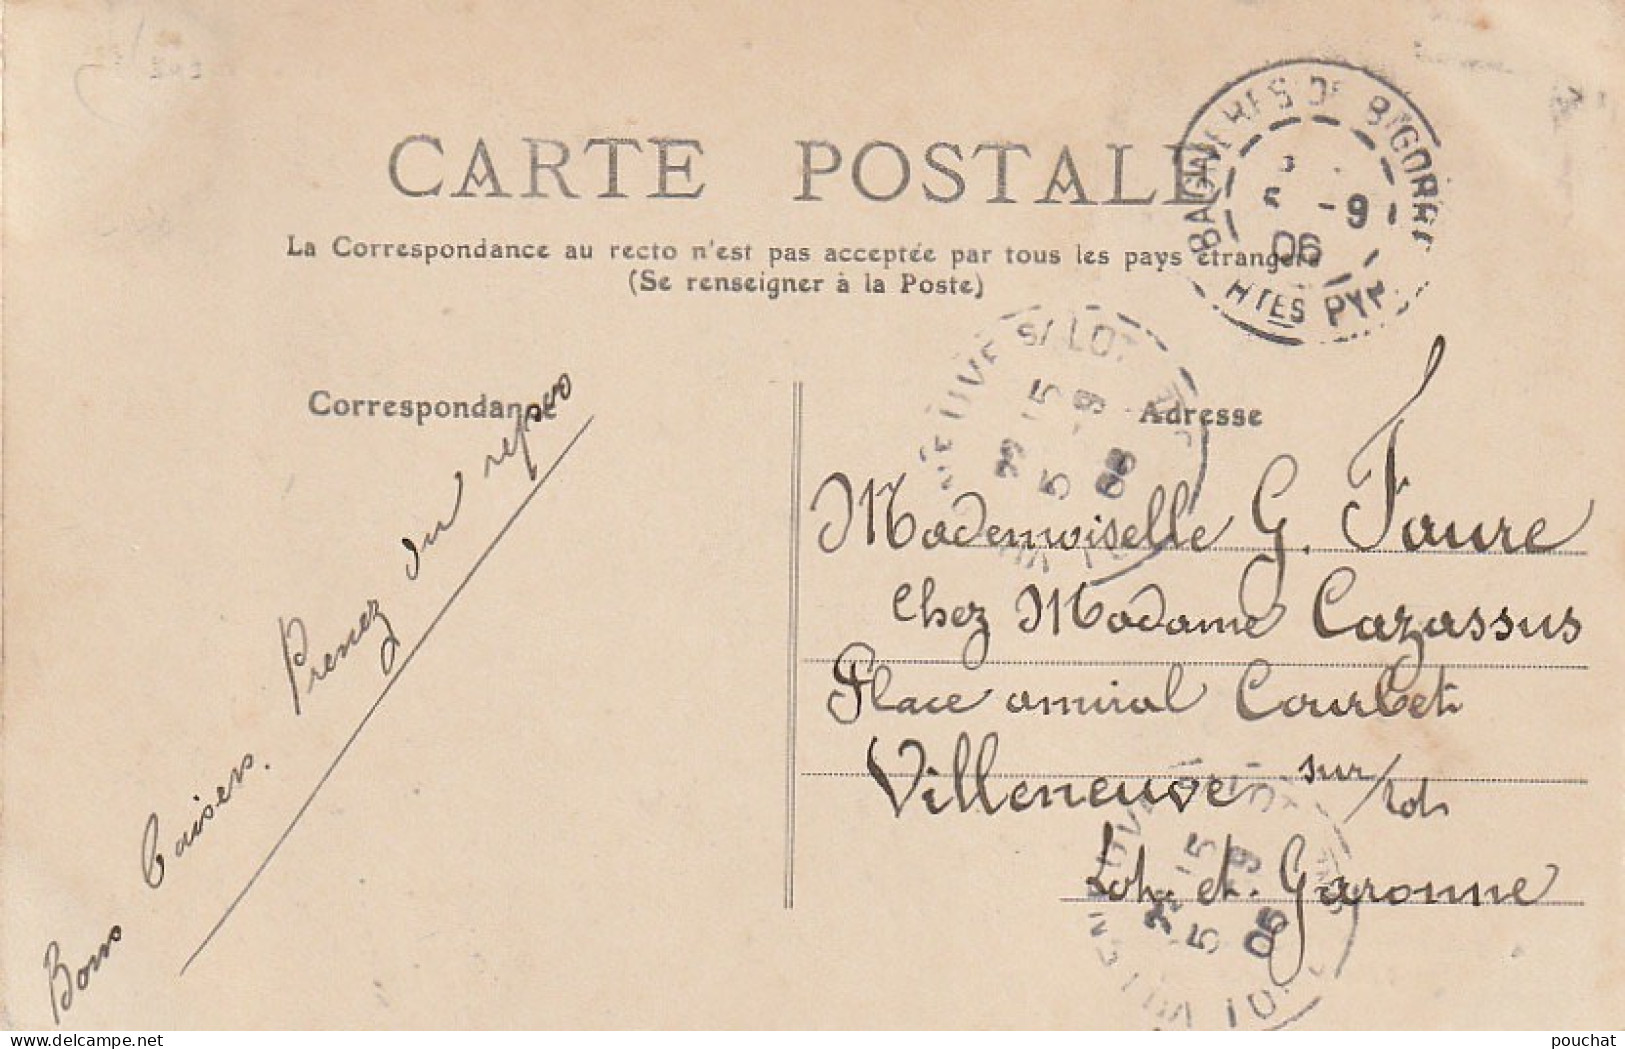 CARTE POSTALE
La Correspondance au recto n'est pas acceptée par tous les pays étrangers
(Se renseigner à la Poste)
BAGNERES DE BIGORRE
-9
06
HTES PYR
Correspondance
Adresse
Bons baisers. Prenez du repos
NEUVE S/ LOT
15
5 -9
06
Mademoiselle G. Faure
Chez Madame Cazassus
Place amiral Courbet
Villeneuve sur/Lot
Lot et Garonne
15
5 -9
06
pouchat